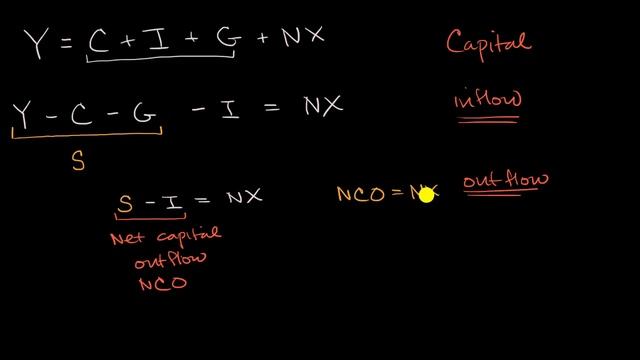 Y = C + I + G + NX
Capital
Y - C - G - I = NX
inflow
S
S - I = NX
NCO = NX
outflow
Net capital
outflow
NCO